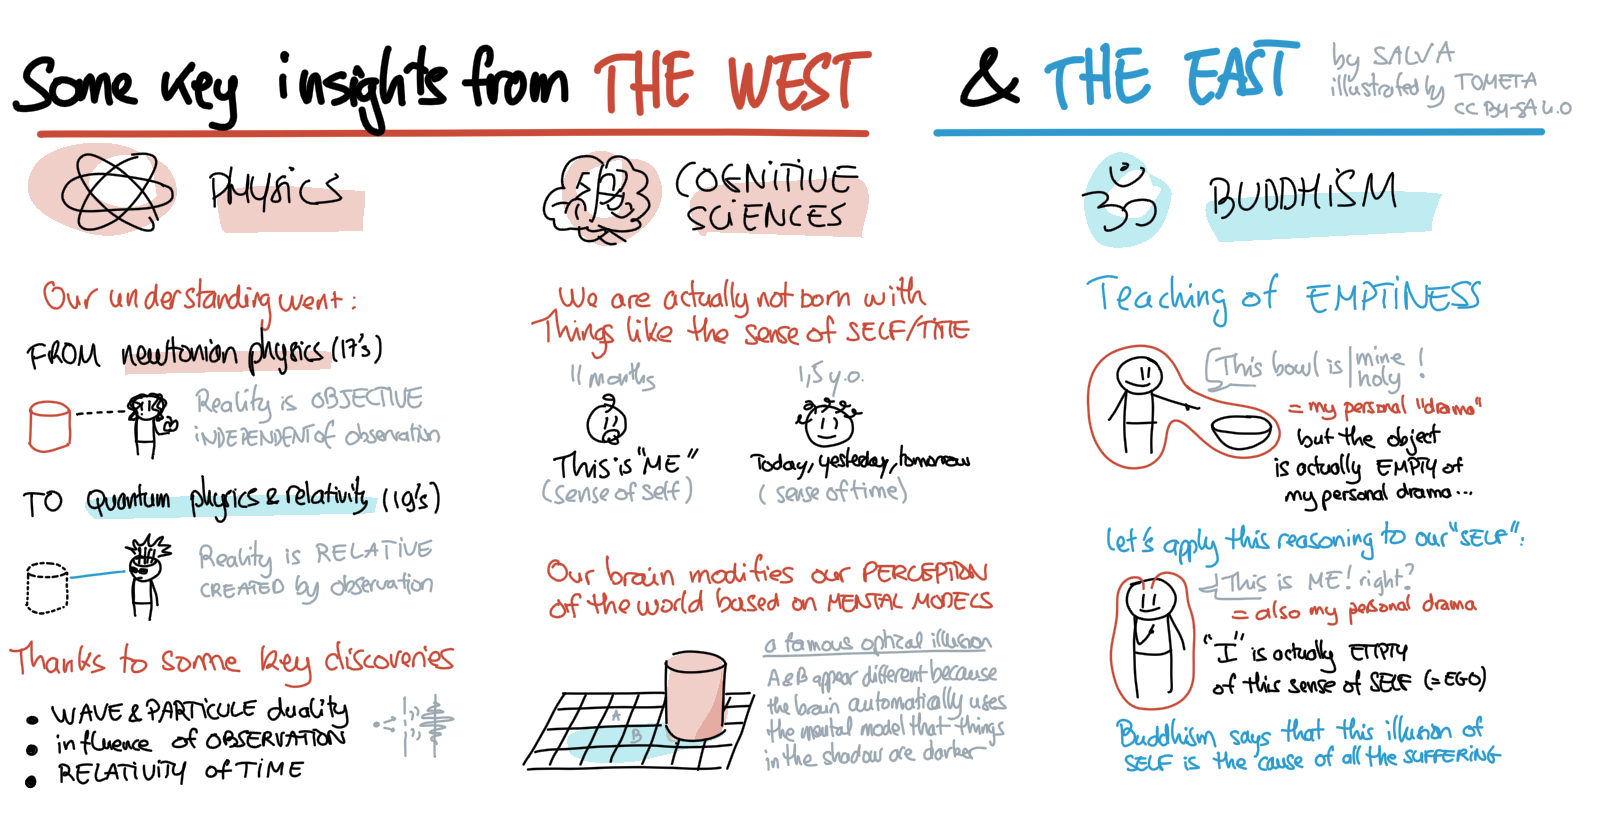 Some key insights from THE WEST & THE EAST
by SALVA
illustrated by TOMETA
CC BY-SA 4.0
PHYSICS
Our understanding went:
FROM newtonian physics (17's)
Reality is OBJECTIVE
INDEPENDENT of observation
TO Quantum physics & relativity (19's)
Reality is RELATIVE
CREATED by observation
Thanks to some key discoveries
• WAVE & PARTICULE duality
• influence of OBSERVATION
• RELATIVITY of TIME
COGNITIVE
SCIENCES
We are actually not born with
Things like the sense of SELF/TIME
11 months
This is "ME"
(sense of self)
1,5 y.o.
Today, yesterday, tomorrow
(sense of time)
Our brain modifies our PERCEPTION
of the world based on MENTAL MODELS
A
B
a famous optical illusion
A & B appear different because
the brain automatically uses
the mental model that things
in the shadow are darker
BUDDHISM
Teaching of EMPTINESS
This bowl is | mine
holy !
= my personal "drama"
but the object
is actually EMPTY of
my personal drama...
let's apply this reasoning to our "SELF":
This is ME! right?
= also my personal drama
"I" is actually EMPTY
of this sense of SELF (= EGO)
Buddhism says that this illusion of
SELF is the cause of all the SUFFERING